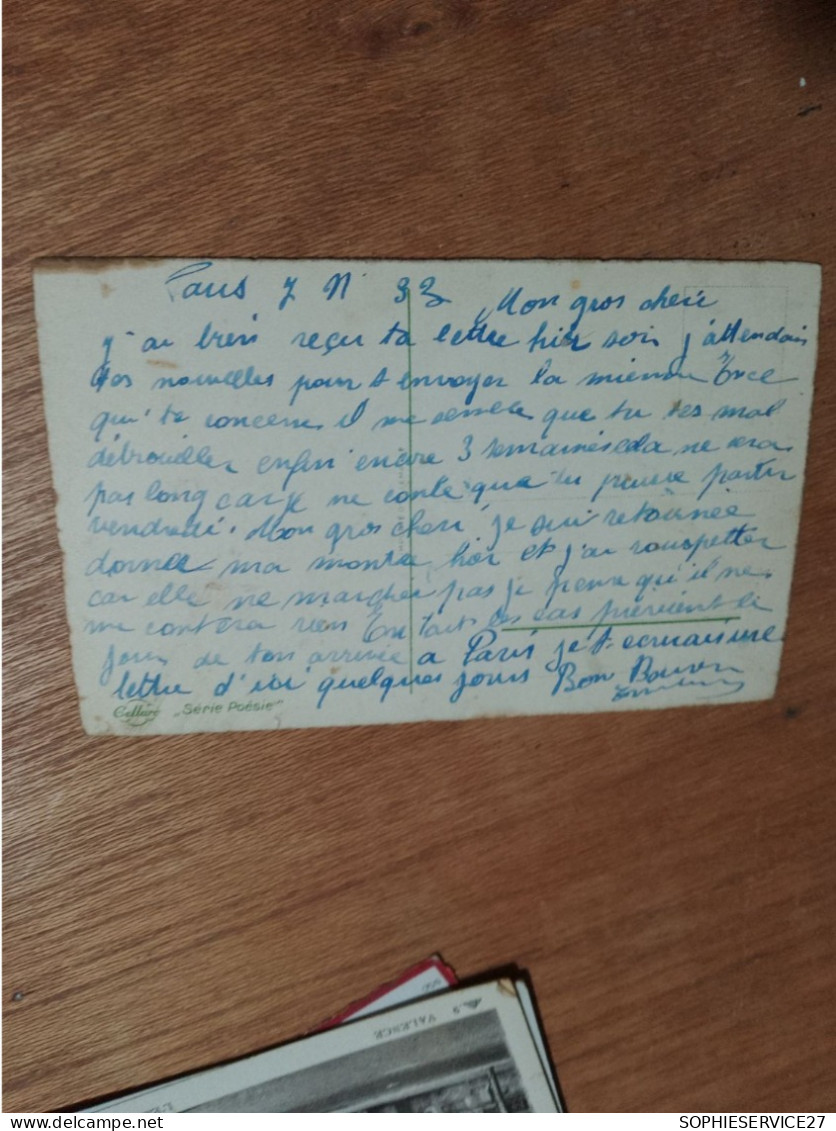 Paris 7 N 33 Mon gros cheri
j'ai bien reçu ta lettre hier soir j'attendais
des nouvelles pour t envoyer la mienne
qui te concerne il me semble que tu tes mal
débrouiller enfin encore 3 semaines cela ne sera
pas long car je ne conte que tu puisse partir
vendredi. Mon gros cheri je sui retournée
donner ma montre hier et j'ai rouspetter
car elle ne marcher pas je pense qu'il ne
me contera rien En tout les cas previent le
jour de ton arrivée a Paris je t-ecrirais une
lettre d'ici quelques jours Bon Baiser
"Série Poésie"
9 VALENCE
SOPHIESERVICE27